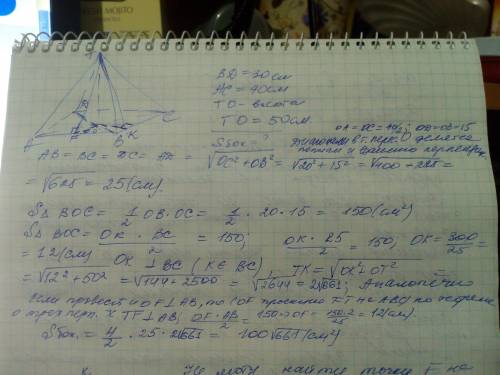 MOJITO
T
A
F
B
K
C
BD = 30 см
AC = 40 см
TO - высота
TO = 50 см.
OA = OC = 40/2; OB = OD = 15
Sбок = ?
AB = BC = DC = AD = √OC² + OB² = √20² + 15² = √400 + 225 =
= √625 = 25 (см).
SΔ BOC = 1/2 OB · OC = 1/2 · 20 · 15 = 150 (см²)
SΔ BOC = OK · BC / 2 = 150; OK · 25 / 2 = 150, OK = 300/25 =
= 12 (см) OK ⊥ BC (K ∈ BC), TK = √OK² + OT² =
= √12² + 50² = √144 + 2500 = √2644 = 2√661; Аналогично
Если провести OF ⊥ AB, то (OF проекция FT на ABC) по теореме
о трех перп. TF ⊥ AB; OF · AB / 2 = 150 => OF = 150·2/25 = 12 (см).
Sбок = 4/2 · 25 · 2√661 = 100√661 (см²)
Не могу найти точки F на